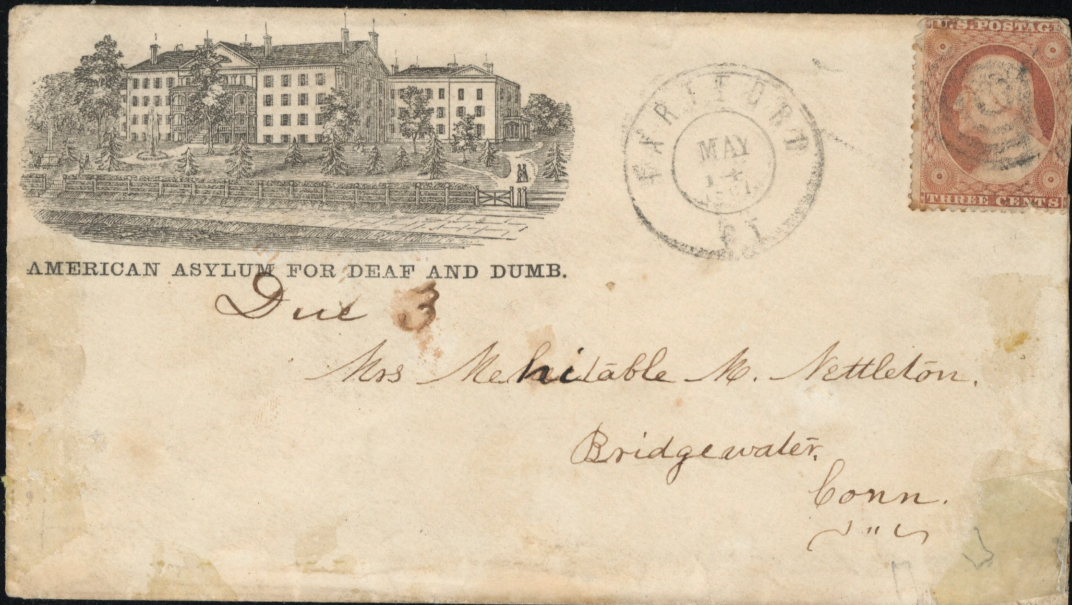 AMERICAN ASYLUM FOR DEAF AND DUMB.
HARTFORD
MAY
CT
U.S. POSTAGE
THREE CENTS
Due 3
Mrs Mehitable M. Nettleton.
Bridgewater,
Conn.